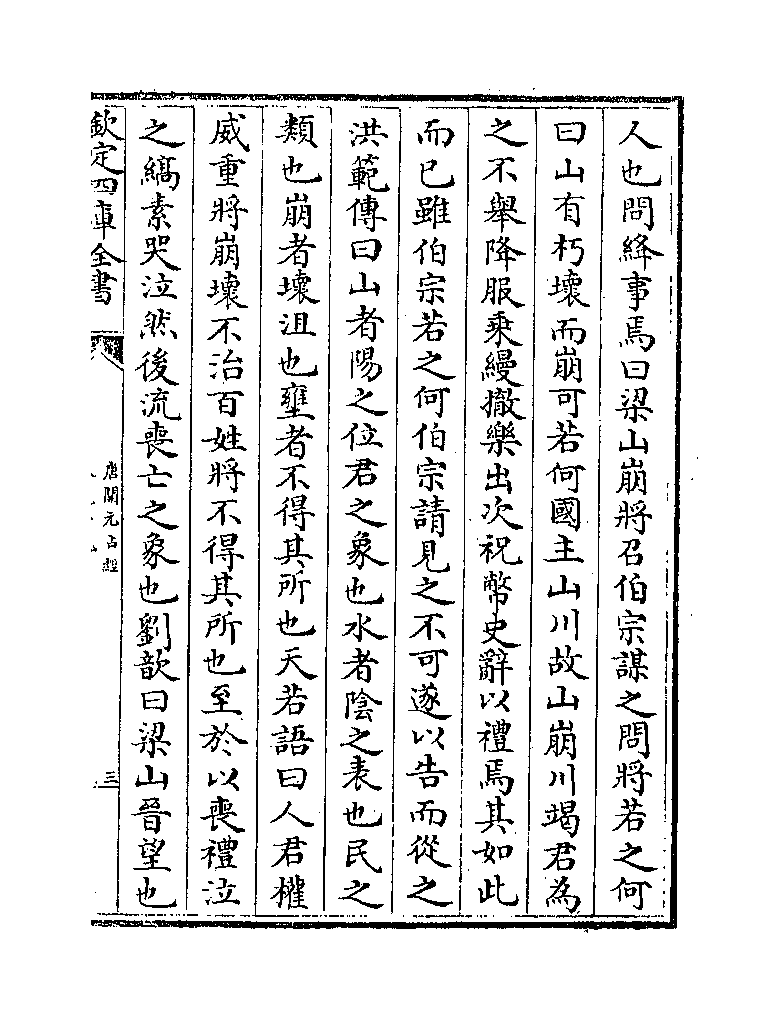 人也問絳事焉曰梁山崩將召伯宗謀之問將若之何
曰山有朽壞而崩可若何國主山川故山崩川竭君為
之不舉降服乘縵撤樂出次祝幣史辭以禮焉其如此
而已雖伯宗若之何伯宗請見之不可遂以告而從之
洪範傳曰山者陽之位君之象也水者陰之表也民之
類也崩者壞沮也壅者不得其所也天若語曰人君權
威重將崩壞不治百姓將不得其所也至於以喪禮泣
之縞素哭泣然後流喪亡之象也劉歆曰梁山晉望也
欽定四庫全書
唐開元占經
三